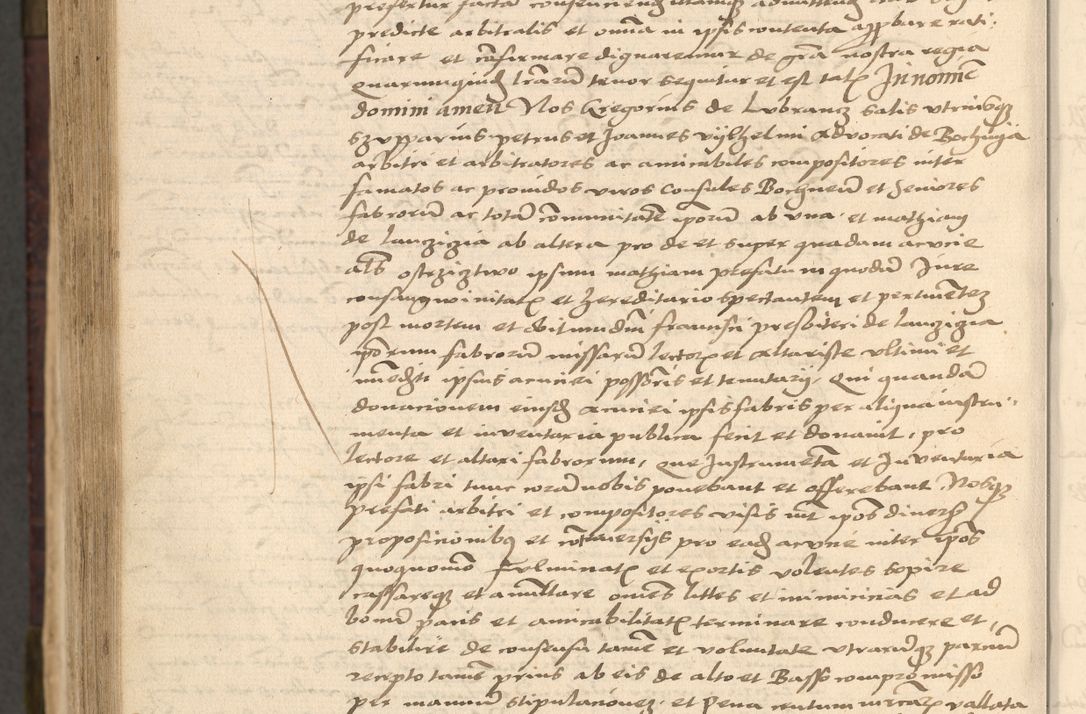 predicte arbitralis et om̄ia in ipsis contenta approbare rati
ficare et cōfirmare dignaremur de gr̄a nostra regia
quarumquidē lr̄arū tenor sequitur et est tal̄ In nomīe
domini amen Nos Gregorius de Lubrancz salis utriusqꝫ
szupparius petrus et Joannes vyelhelmi advocati de Bochnya
arbitri et arbitratores ac amicabiles compositores inter
famatos ac providos viros Consules Bochnen̄ et Seniores
fabrorū ac totā cōmunitatē ipōrū ab una et mathiam
de lanczicia ab altera pro de et super quadam acucie
al̄s ostrzicztwo ipsum mathiam prefatū in quodā Jure
consangwinitatis et hereditario spectantem et pertinētez
post mortem et obitum dn̄i francisci presbiteri de lanczicia
ipōrum fabrorū missarū lectoris et altariste ultimi et
imēdiati ipsius acuciei possōris et tenutarij Qui quandā
donacionem eiusdē acuciei ipsis fabris per aliqua instru
menta et inventaria publica fecit et donavit pro
lectore et altari fabrorum que Instrumēta et Inventaria
ipsi fabri tunc corā nobis ponebant et offerebant Nosqꝫ
prefati arbitri et compositores visis int̄ ipōs diversis
proposicionibꝫ et cōtroversijs pro eadē acucie inter ipōs
quoquomō fulminatis et exortis volentes sopire
cassareqꝫ et anullare om̄es littes et inimicicias et ad
bonū pacis et amicabilitatis terminare conducere et
stabilire de consensu tamē et voluntate utrarūqꝫ parciū
recepto tamē prius ab eis de alto et Basso compromisso
per manuū stipulacionez et Pena centum vallata